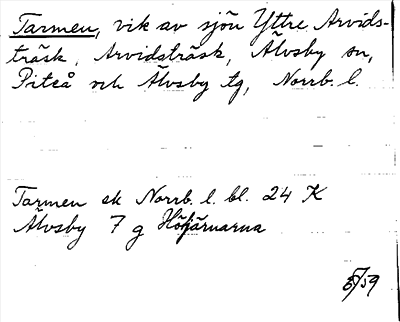 Tarmen, vik av sjön Yttre Arvids-
träsk, Arvidsträsk, Älvsby sn,
Piteå och Älvsby tg, Norrb. l.
Tarmen ek Norrb. l. bl. 24 K
Älvsby 7 g
/59